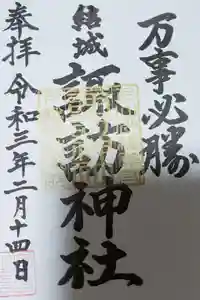 万事必勝
結城
諏訪神社
奉拝 令和三年二月十四日